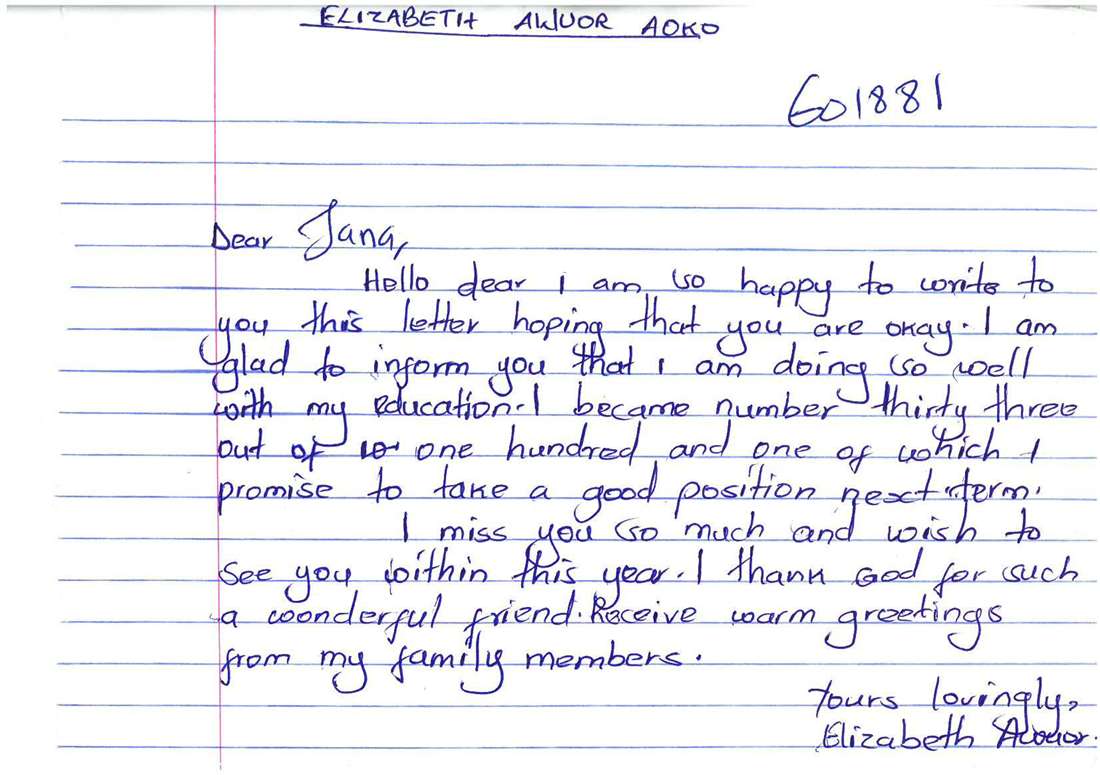 ELIZABETH AWUOR AOKO
601881
Dear Jana,
Hello dear I am so happy to write to
you this letter hoping that you are okay. I am
glad to inform you that I am doing so well
with my education. I became number thirty three
out of 10 one hundred and one of which I
promise to take a good position next term.
I miss you so much and wish to
see you within this year. I thank God for such
a woonderful friend. Receive warm greetings
from my family members.
Yours lovingly,
Elizabeth Awuor.